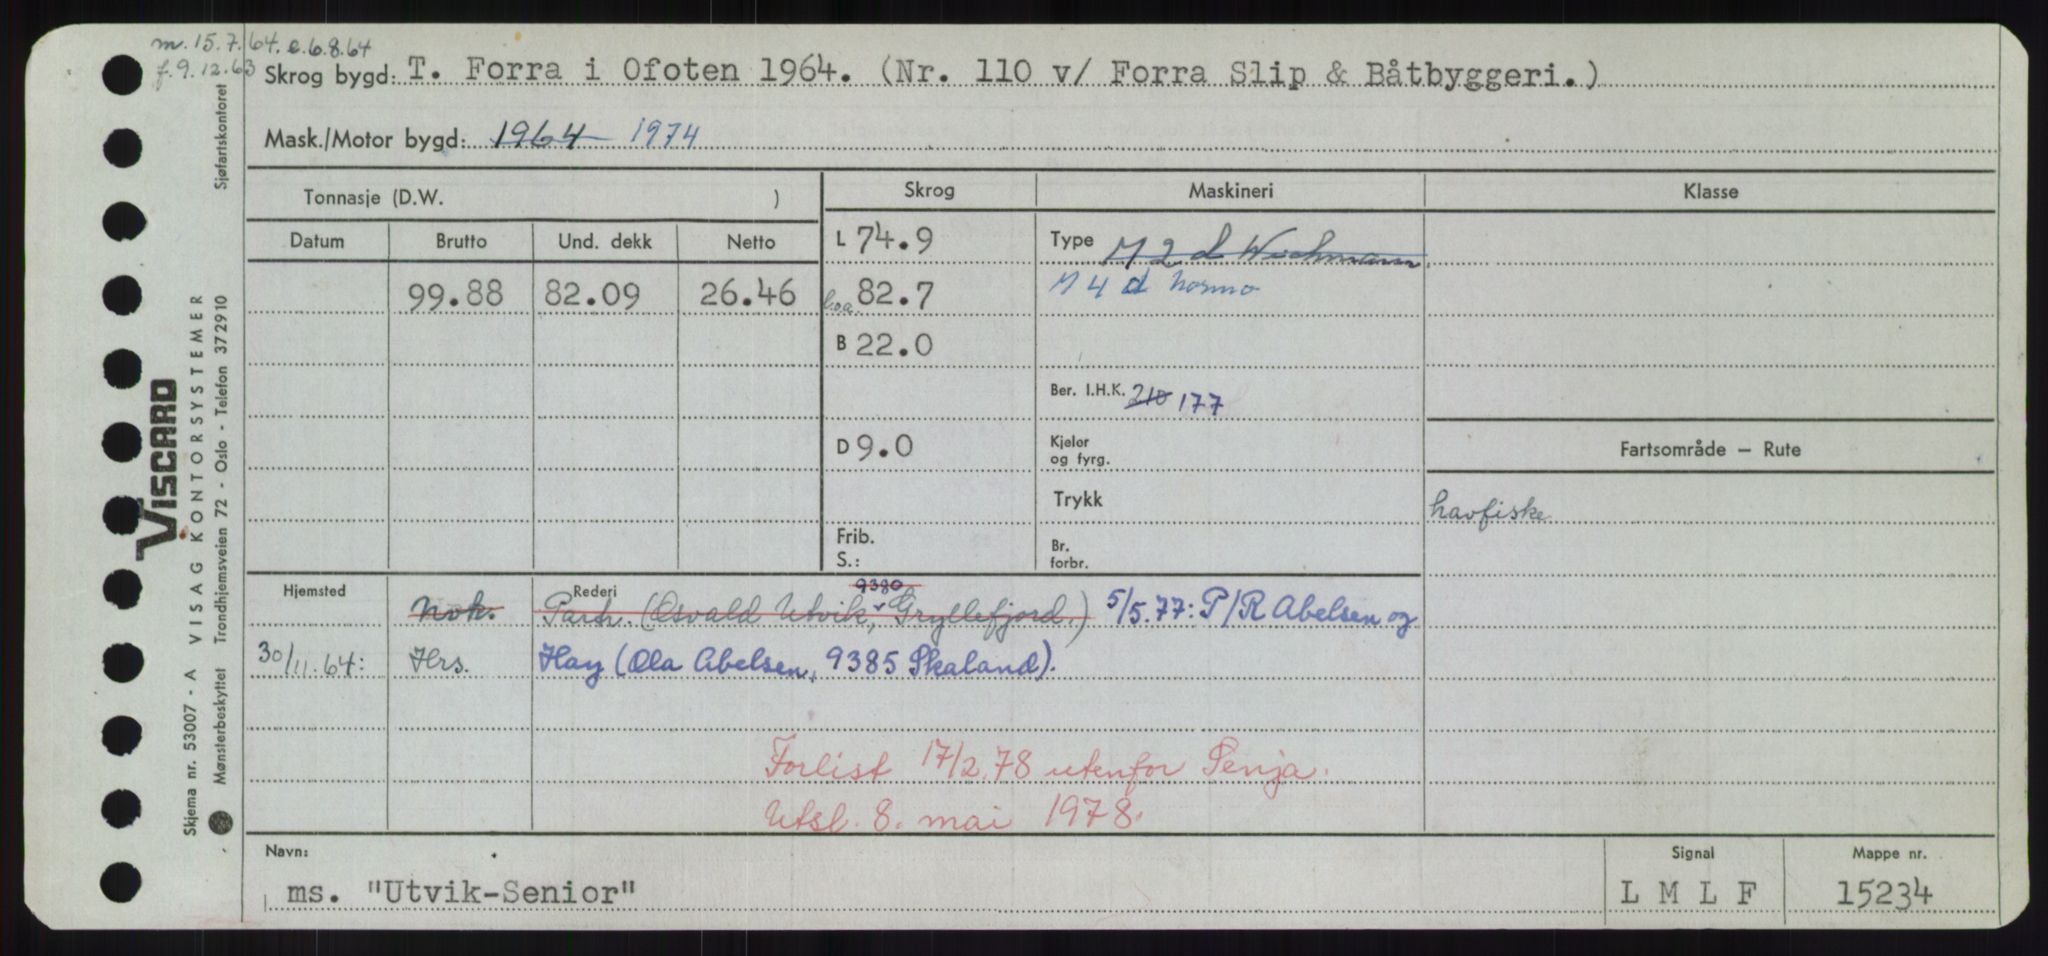 m. 15.7.64. e. 6.8.64
f. 9.12.63
Skrog bygd: T. Forra i Ofoten 1964. (Nr. 110 v/ Forra Slip & Båtbyggeri.)
Mask./Motor bygd: 1964 1974
Tonnasje (D.W. )
Skrog
Maskineri
Klasse
Datum
Brutto
Und. dekk
Netto
99.88
82.09
26.46
L 74.9
l.o.a. 82.7
B 22.0
D 9.0
Frib.
S.:
Type M 2 d Wichmann
M 4 d Normo
Ber. I.H.K. 210 177
Kjeler
og fyrg.
Trykk
Br.
forbr.
Fartsområde – Rute
havfiske
Hjemsted
Rederi
9380
Nok. Partr. (Osvald Utvik, Gryllefjord.) 5/5.77: P/R Abelsen og
30/11.64: Hrs. Hay (Ola Abelsen, 9385 Skaland).
Forlist 17/2.78 utenfor Senja.
Utsl. 8. mai 1978.
Navn:
ms. "Utvik-Senior"
Signal
L M L F
Mappe nr.
15234
VISCARD
Skjema nr. 53007 - A VISAG KONTORSYSTEMER
Mønsterbeskyttet Trondhjemsveien 72 - Oslo - Telefon 372910 Sjøfartskontoret